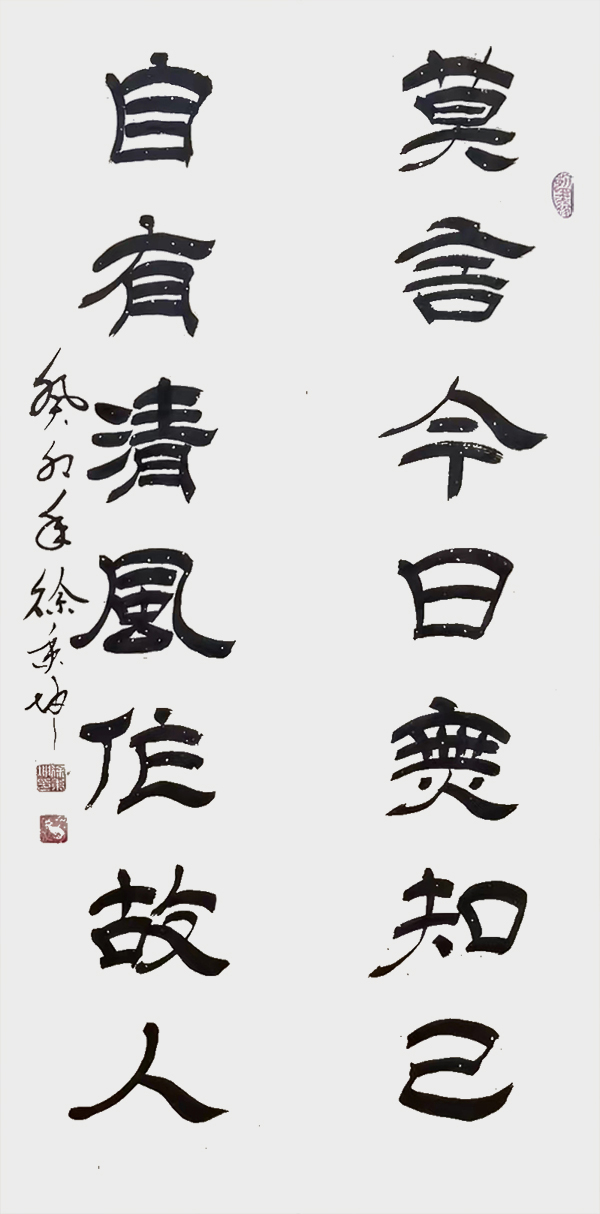 莫言今日無知己
自有清風作故人
癸卯年徐秉坤